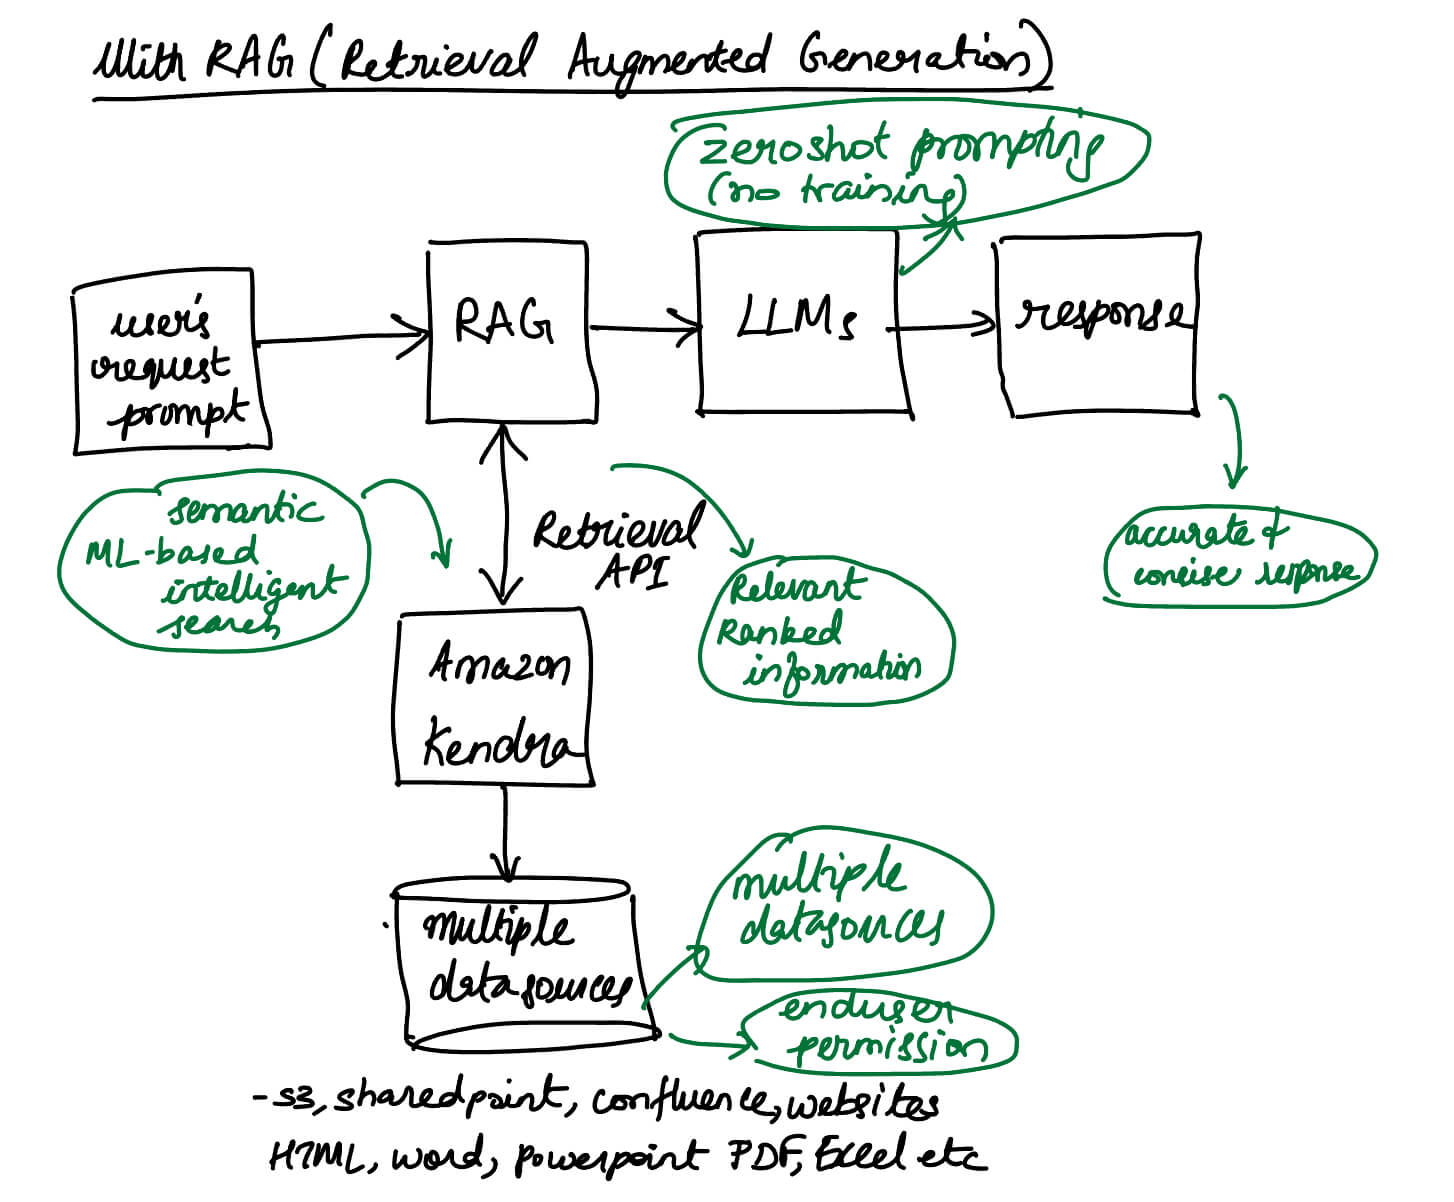 With RAG (Retrieval Augmented Generation)
zeroshot prompting
(no training)
user's
request
prompt
RAG
LLMs
response
semantic
ML-based
intelligent
search
Retrieval
API
Relevant
Ranked
information
accurate &
concise response
Amazon
Kendra
multiple
datasources
multiple
datasources
enduser
permission
- S3, sharedpoint, confluence, websites
HTML, word, powerpoint PDF, Excel etc